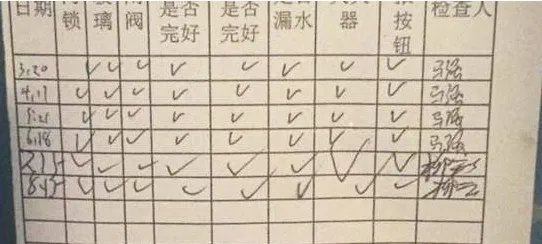 日期 锁 玻璃 阀 是否完好 是否完好 漏水 器 按钮 检查人
3.20 ✓ ✓ ✓ ✓ ✓ ✓ ✓ ✓ 马强
4.17 ✓ ✓ ✓ ✓ ✓ ✓ ✓ ✓ 马强
5.21 ✓ ✓ ✓ ✓ ✓ ✓ ✓ ✓ 马强
6.18 ✓ ✓ ✓ ✓ ✓ ✓ ✓ ✓ 马强
✓ ✓ ✓ ✓ ✓ ✓ ✓ ✓
✓ ✓ ✓ ✓ ✓ ✓ ✓ ✓